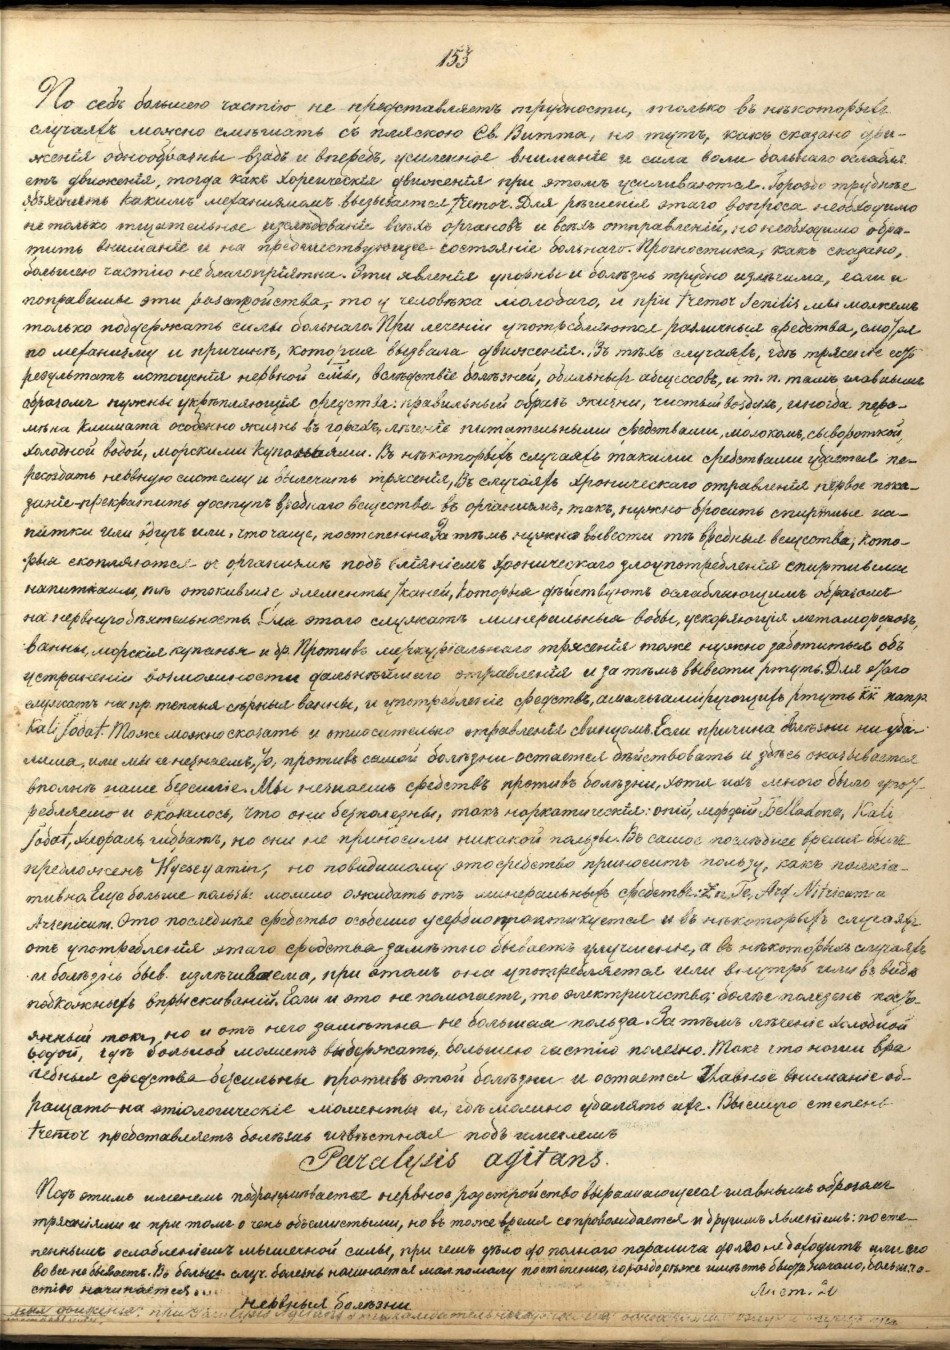 153
По себѣ большею частію не представляетъ трудности, только въ нѣкоторыхъ
случаяхъ можно смѣшать съ пляскою Св. Витта, но тутъ, какъ сказано дви-
женія однообразны взадъ и впередъ, усиленное вниманіе и сила воли больнаго ослабля
етъ движенія, тогда какъ хореическія движенія при этомъ усиливаются. Гораздо труднѣе
объяснять какимъ механизмомъ вызывается tremor. Для рѣшенія этаго вопроса необходимо
не только тщательное изслѣдованіе всѣхъ органовъ и всѣхъ отправленій, но необходимо обра-
тить вниманіе и на предшествующее состояніе больнаго. Прогностика, какъ сказано,
большею частію неблагопріятна. Эти явленія упорны и болѣзнь трудно излѣчима, если и
поправимы эти разстройства, то у человѣка молодаго, и при tremor senilis мы можемъ
только поддержать силы больнаго. При леченіи употребляются различныя средства, смотря
по механизму и причинѣ, которая вызвала движенія. Въ тѣхъ случаяхъ, гдѣ трясеніе есть
результатъ истощенія нервной силы, вслѣдствіе болѣзней, обильныхъ абсцессовъ, и т. п. тамъ главнымъ
образомъ нужны укрѣпляющія средства: правильный образъ жизни, чистый воздухъ, иногда пере-
мѣна климата особенно жизнь въ горахъ, лѣченіе питательными средствами, молокомъ, сывороткой,
холодной водой, морскими купаньями. Въ нѣкоторыхъ случаяхъ такими средствами удается пе-
ресоздать нервную систему и излечить трясенія. Въ случаяхъ хроническаго отравленія первое пока-
заніе – прекратить доступъ вреднаго вещества въ организмъ, такъ, нужно бросить спиртные на-
питки или вдругъ или, что чаще, постепенно. За тѣмъ нужно вывести тѣ вредныя вещества, кото-
рыя скопляются въ организмѣ подъ вліяніемъ хроническаго злоупотребленія спиртными
напитками, тѣ отжившіе элементы тканей, которыя дѣйствуютъ ослабляющимъ образомъ
на нервную дѣятельность. Для этого служатъ минеральныя воды, ускоряющія метаморфозъ,
ванны, морскія купанья и др. Противъ меркуріальнаго трясенія тоже нужно заботиться объ
устраненіи возможности дальнѣйшаго отравленія и за тѣмъ вывести ртуть. Для этого
служатъ напр. теплыя сѣрныя ванны, и употребленіе средствъ, амальгамирующихъ ртуть напр.
Kali Jodat. Тоже можно сказать и относительно отравленія свинцомъ. Если причина болѣзни ни уда-
лима, или мы ее незнаемъ, то, противъ самой болѣзни остается дѣйствовать и здѣсь оказывается
вполнѣ наше безсиліе. Мы незнаемъ средствъ противъ болѣзни, хотя ихъ много было упот-
ребляемо и оказалось, что они безполезны, такъ наркатическія: опій, морфій, Belladona, Kali
Jodat, хлоралъ гидратъ, но они не приносили никакой пользы. Въ самое послѣднее время былъ
предложенъ Hyoscyamin, но повидимому это средство приноситъ пользу, какъ палліа-
тивно. Еще больше пользы можно ожидать отъ минеральныхъ средствъ: Zn, Fe, Arg. Nitricum и
Arsenicum. Это последнее средство особенно усердно практикуется и въ нѣкоторыхъ случаяхъ
отъ употребленія этаго средства замѣтно бываетъ улучшенье, а въ нѣкоторыхъ случаяхъ
и болѣзнь быв. излѣчиваема, при этомъ она употребляется или внутрь или въ видѣ
подкожныхъ впрыскиваній. Если и это не помогаетъ, то электричество; болѣе полезенъ посто-
янный токъ, но и отъ него замѣтна не большая польза. За тѣмъ лѣченіе холодной
водой, гдѣ больной можетъ выдержать, большею частію полезно. Такъ что наши вра
чебныя средства безсильны противъ этой болѣзни и остается главное вниманіе об-
ращать на этіологическіе моменты и, гдѣ можно удалять ихъ. Высшую степень
tremor представляетъ болѣзнь извѣстная подъ именемъ
Paralysis agitans.
Подъ этимъ именемъ подразумѣвается нервное разстройство выражающееся главнымъ образомъ
трясеніями и при томъ очень обширными, но въ тоже время сопровождается и другимъ явленіемъ: посте-
пеннымъ ослабленіемъ мышечной силы, при чемъ дѣло до полнаго паралича долго не доходитъ или его
вовсе не бываетъ. Въ больш. случ. болезнь начинается мало помалу постепенно, гораздо рѣже имѣетъ быстр. начало, больш. ча-
стію начинается...
Лист. 20
нервныя болѣзни